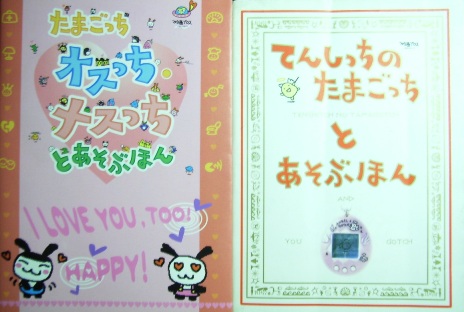 たまごっち
オスっち・
メスっち
とあそぶほん
I LOVE YOU, TOO!
HAPPY!
てんしっちの
たまごっち
と
あそぶほん
AND